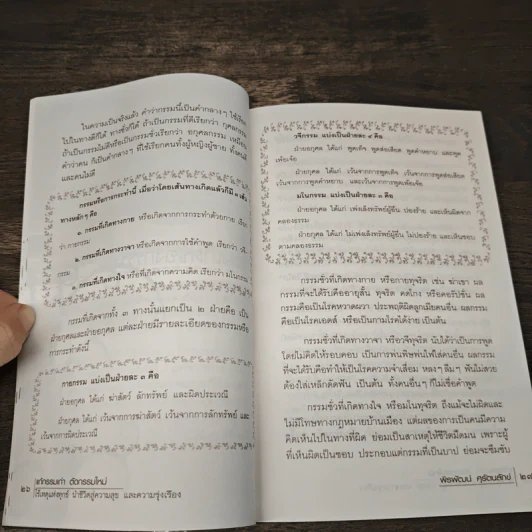 ในความเป็นจริงแล้ว คำว่ากรรมนี้เป็นคำกลางๆ ใช้เรียก
ไปในทางดีก็ได้ ทางชั่วก็ได้ ถ้าเป็นกรรมที่ดีเรียกว่า กุศลกรรม
ถ้าเป็นกรรมไม่ดีหรือเป็นกรรมชั่วเรียกว่า อกุศลกรรม เหมือน
คำว่าคน ก็เป็นคำกลางๆ ที่ใช้เรียกคนทั้งผู้หญิงผู้ชาย ทั้งคนดี
และคนไม่ดี
กรรมหรือการกระทำนี้ เมื่อว่าโดยเส้นทางเกิดแล้วก็มี ๓ เส้น
ทางหลักๆ คือ
๑. กรรมที่เกิดทางกาย หรือเกิดจากการกระทำด้วยกาย เรียก
ว่า กายกรรม
๒. กรรมที่เกิดทางวาจา หรือเกิดจากการใช้คำพูด เรียกว่า วจี
กรรม
๓. กรรมที่เกิดทางใจ หรือที่เกิดจากความคิด เรียกว่า มโนกรรม
กรรมที่เกิดจากทั้ง ๓ ทางนั้นแยกเป็น ๒ ฝ่ายคือ เป็น
ฝ่ายกุศลและฝ่ายอกุศล แต่ละฝ่ายมีรายละเอียดของกรรมหรือ
การกระทำดังนี้
กายกรรม แบ่งเป็นฝ่ายละ ๓ คือ
ฝ่ายอกุศล ได้แก่ ฆ่าสัตว์ ลักทรัพย์ และผิดประเวณี
ฝ่ายกุศล ได้แก่ เว้นจากการฆ่าสัตว์ เว้นจากการลักทรัพย์ และ
เว้นจากการผิดประเวณี
๒๖ แก้กรรมเก่า ตัดกรรมใหม่
ไร้เหตุแห่งทุกข์ นำชีวิตสู่ความสุข และความรุ่งเรือง
วจีกรรม แบ่งเป็นฝ่ายละ ๔ คือ
ฝ่ายอกุศล ได้แก่ พูดเท็จ พูดส่อเสียด พูดคำหยาบ และพูด
เพ้อเจ้อ
ฝ่ายกุศล ได้แก่ เว้นจากการพูดเท็จ เว้นจากการพูดส่อเสียด
เว้นจากการพูดคำหยาบ และเว้นจากการพูดเพ้อเจ้อ
มโนกรรม แบ่งเป็นฝ่ายละ ๓ คือ
ฝ่ายอกุศล ได้แก่ เพ่งเล็งทรัพย์ผู้อื่น ปองร้าย และเห็นผิดจาก
คลองธรรม
ฝ่ายกุศล ได้แก่ ไม่เพ่งเล็งทรัพย์ผู้อื่น ไม่ปองร้าย และเห็นชอบ
ตามคลองธรรม
กรรมชั่วที่เกิดทางกาย หรือกายทุจริต เช่น ฆ่าเขา ผล
กรรมที่จะได้รับคืออายุสั้น ทุจริต คดโกง หรือคอร์รัปชั่น ผล
กรรมคือเป็นโรคหวาดผวา ประพฤติผิดลูกเมียคนอื่น ผลกรรม
คือเป็นโรคเอดส์ หรือเป็นกามโรคได้ง่าย เป็นต้น
กรรมชั่วที่เกิดทางวาจา หรือวจีทุจริต นับได้ว่าเป็นการพูด
โดยไม่คิดให้รอบคอบ เป็นการพ่นพิษพ่นไฟใส่คนอื่น ผลกรรม
ที่จะได้รับคือทำให้เป็นโรคความจำเสื่อม หลงๆ ลืมๆ ฟันไม่สวย
ต้องใส่เหล็กดัดฟัน เป็นต้น ทั้งคนอื่นๆ ก็ไม่เชื่อคำพูด
กรรมชั่วที่เกิดทางใจ หรือมโนทุจริต ถึงแม้จะไม่ผิดและ
ไม่มีโทษทางกฎหมายบ้านเมือง แต่ผลของการเป็นคนมีความ
คิดเห็นไปในทางที่ผิด ย่อมเป็นสาเหตุให้ชีวิตมืดมน เพราะผู้
ที่เห็นผิดเป็นชอบ ประกอบแต่กรรมที่เป็นบาป ย่อมจะซึมซับ
พิรพัฒน์ ศุรัตนลักษ์ ๒๗